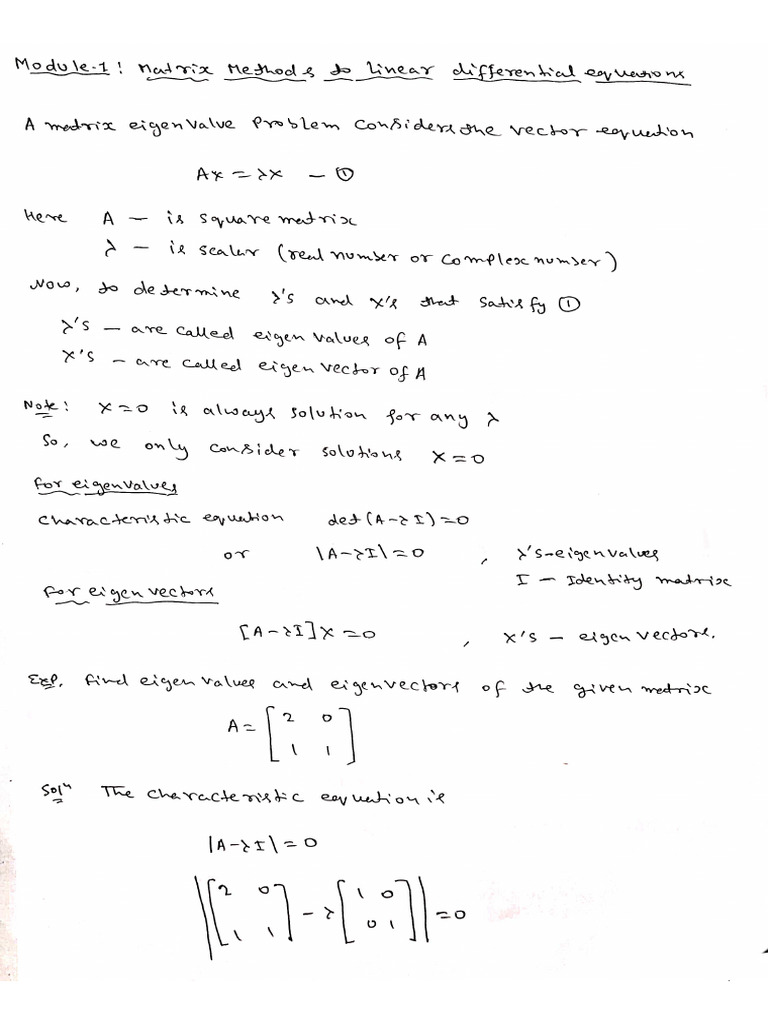 Module-1: Matrix Methods to linear differential equations
A matrix eigenvalue Problem considers the vector equation
Ax = λx — ①
Here A — is square matrix
λ — is scalar (real number or complex number)
Now, to determine λ's and x's that satisfy ①
λ's — are called eigen values of A
x's — are called eigen vector of A
Note: x=0 is always solution for any λ
So, we only consider solutions x=0
for eigenvalues
characteristic equation det(A-λI)=0
or |A-λI|=0 , λ's-eigenvalues
I — Identity matrix
for eigen vectors
[A-λI]x=0 , x's — eigen vectors.
Exp. find eigen values and eigenvectors of the given matrix
A = [2 0
1 1]
Solⁿ The characteristic equation is
|A-λI|=0
|[2 0
1 1] - λ[1 0
0 1]| = 0